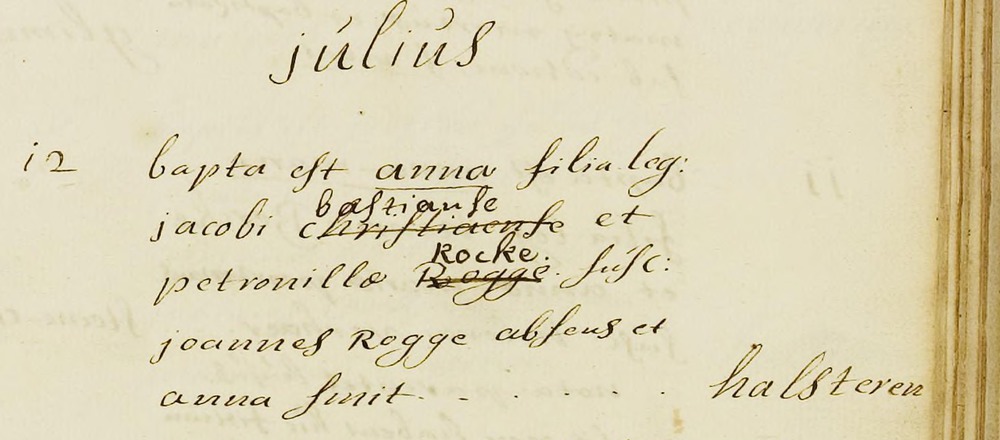 julius
12 bapta est anna filia leg:
bastianse
jacobi christiaense et
Rocke.
petronillæ Rogge. susc:
joannes Rogge absens et
anna smit . . . . . . halsteren